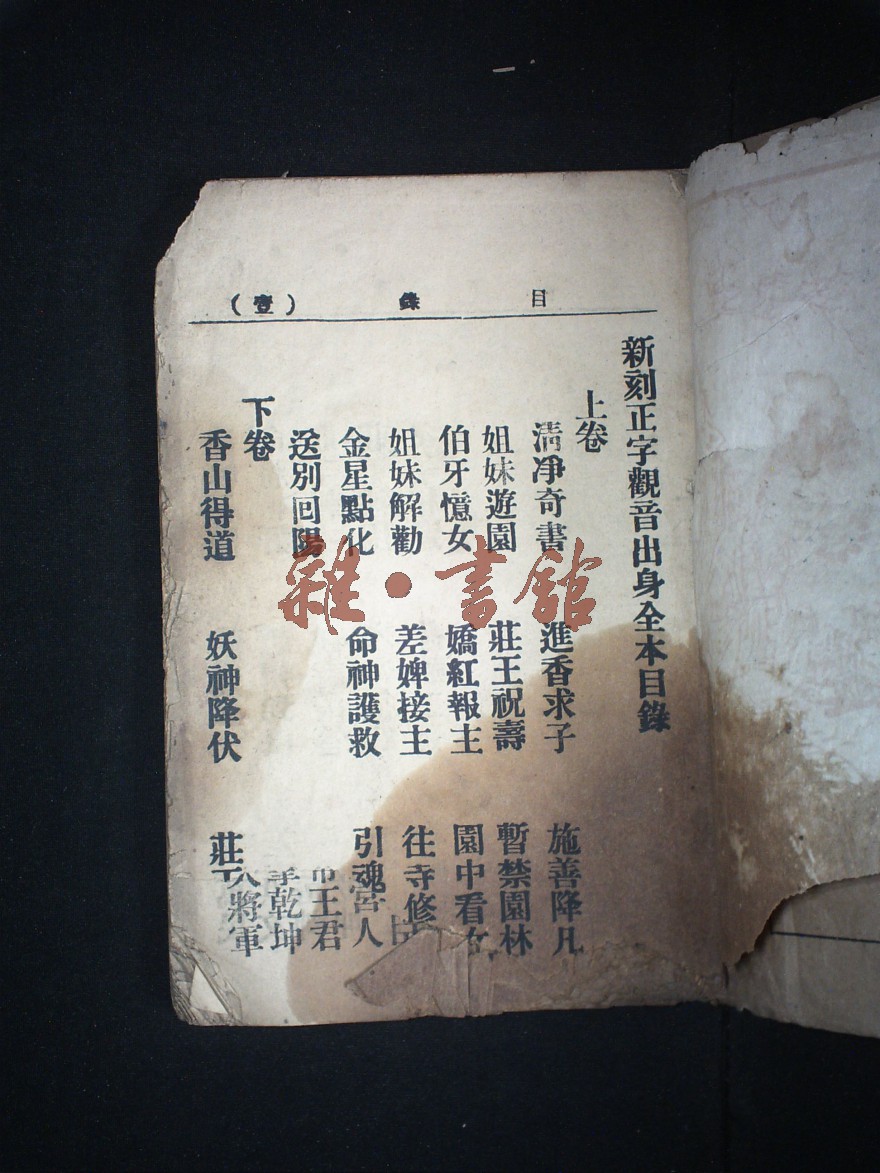 目錄（壹）
新刻正字觀音出身全本目錄
上卷
清净奇書 進香求子 施善降凡
姐妹遊園 莊王祝壽 暫禁園林
伯牙憶女 嬌紅報主 園中看女
姐妹解勸 差婢接主 往寺修
金星點化 命神護救 引魂
送別回陽
下卷
香山得道 妖神降伏 莊
宮人
王君
乾坤
將軍
雜·書館